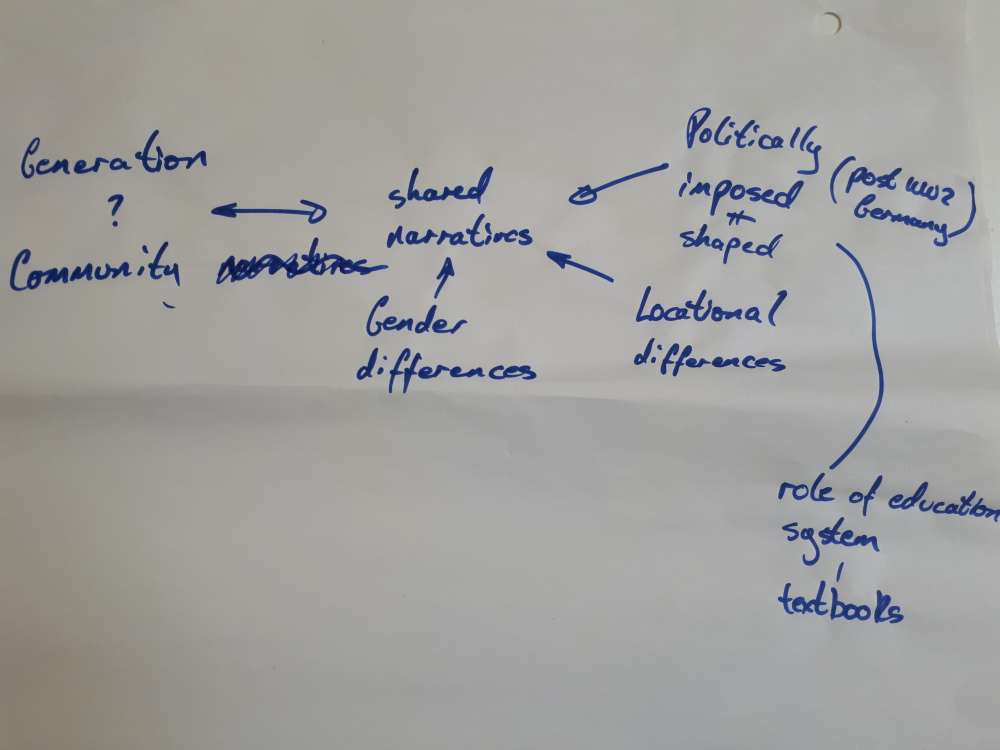 Generation
?
Community
shared
narratives
Gender
differences
Politically
imposed
shaped
(post WW2
Germany)
Locational
differences
role of education
system
textbooks